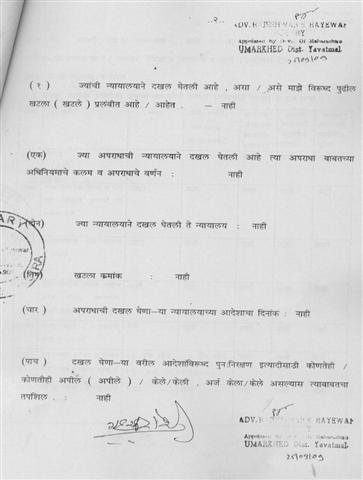 ..२..
ADV. R
RAYEWAR
Appointed by Govt. Of Maharashtra
UMARKHED Dist. Yavatmal.
25/09/09
(१ ) ज्यांची न्यायालयाने दखल घेतली आहे , असा / असे माझे विरूध्द पुढील
खटला ( खटले ) प्रलंबीत आहे / आहेत . — नाही
(एक) ज्या अपराधाची न्यायालयाने दखल घेतली आहे त्या अपराधा बाबतच्या
अधिनियमाचे कलम व अपराधाचे वर्णन : नाही
(दोन) ज्या न्यायालयाने दखल घेतली ते न्यायालय : नाही
(तिन) खटला कमांक : नाही
(चार ) अपराधाची दखल घेणा—या न्यायालयाच्या आदेशाचा दिनांक : नाही
(पाच ) दखल घेणा—या वरील आदेशाविरूध्द पुनःनिरक्षण इत्यादीसाठी कोणतेही /
कोणतीही अपील ( अपीले ) / केले/केली , अर्ज केला/केले असल्यास त्याबाबतचा
तपशिल . : नाही
ADV. R
RAYEWAR
Appointed by Govt. Of Maharashtra
UMARKHED Dist. Yavatmal.
25/09/09